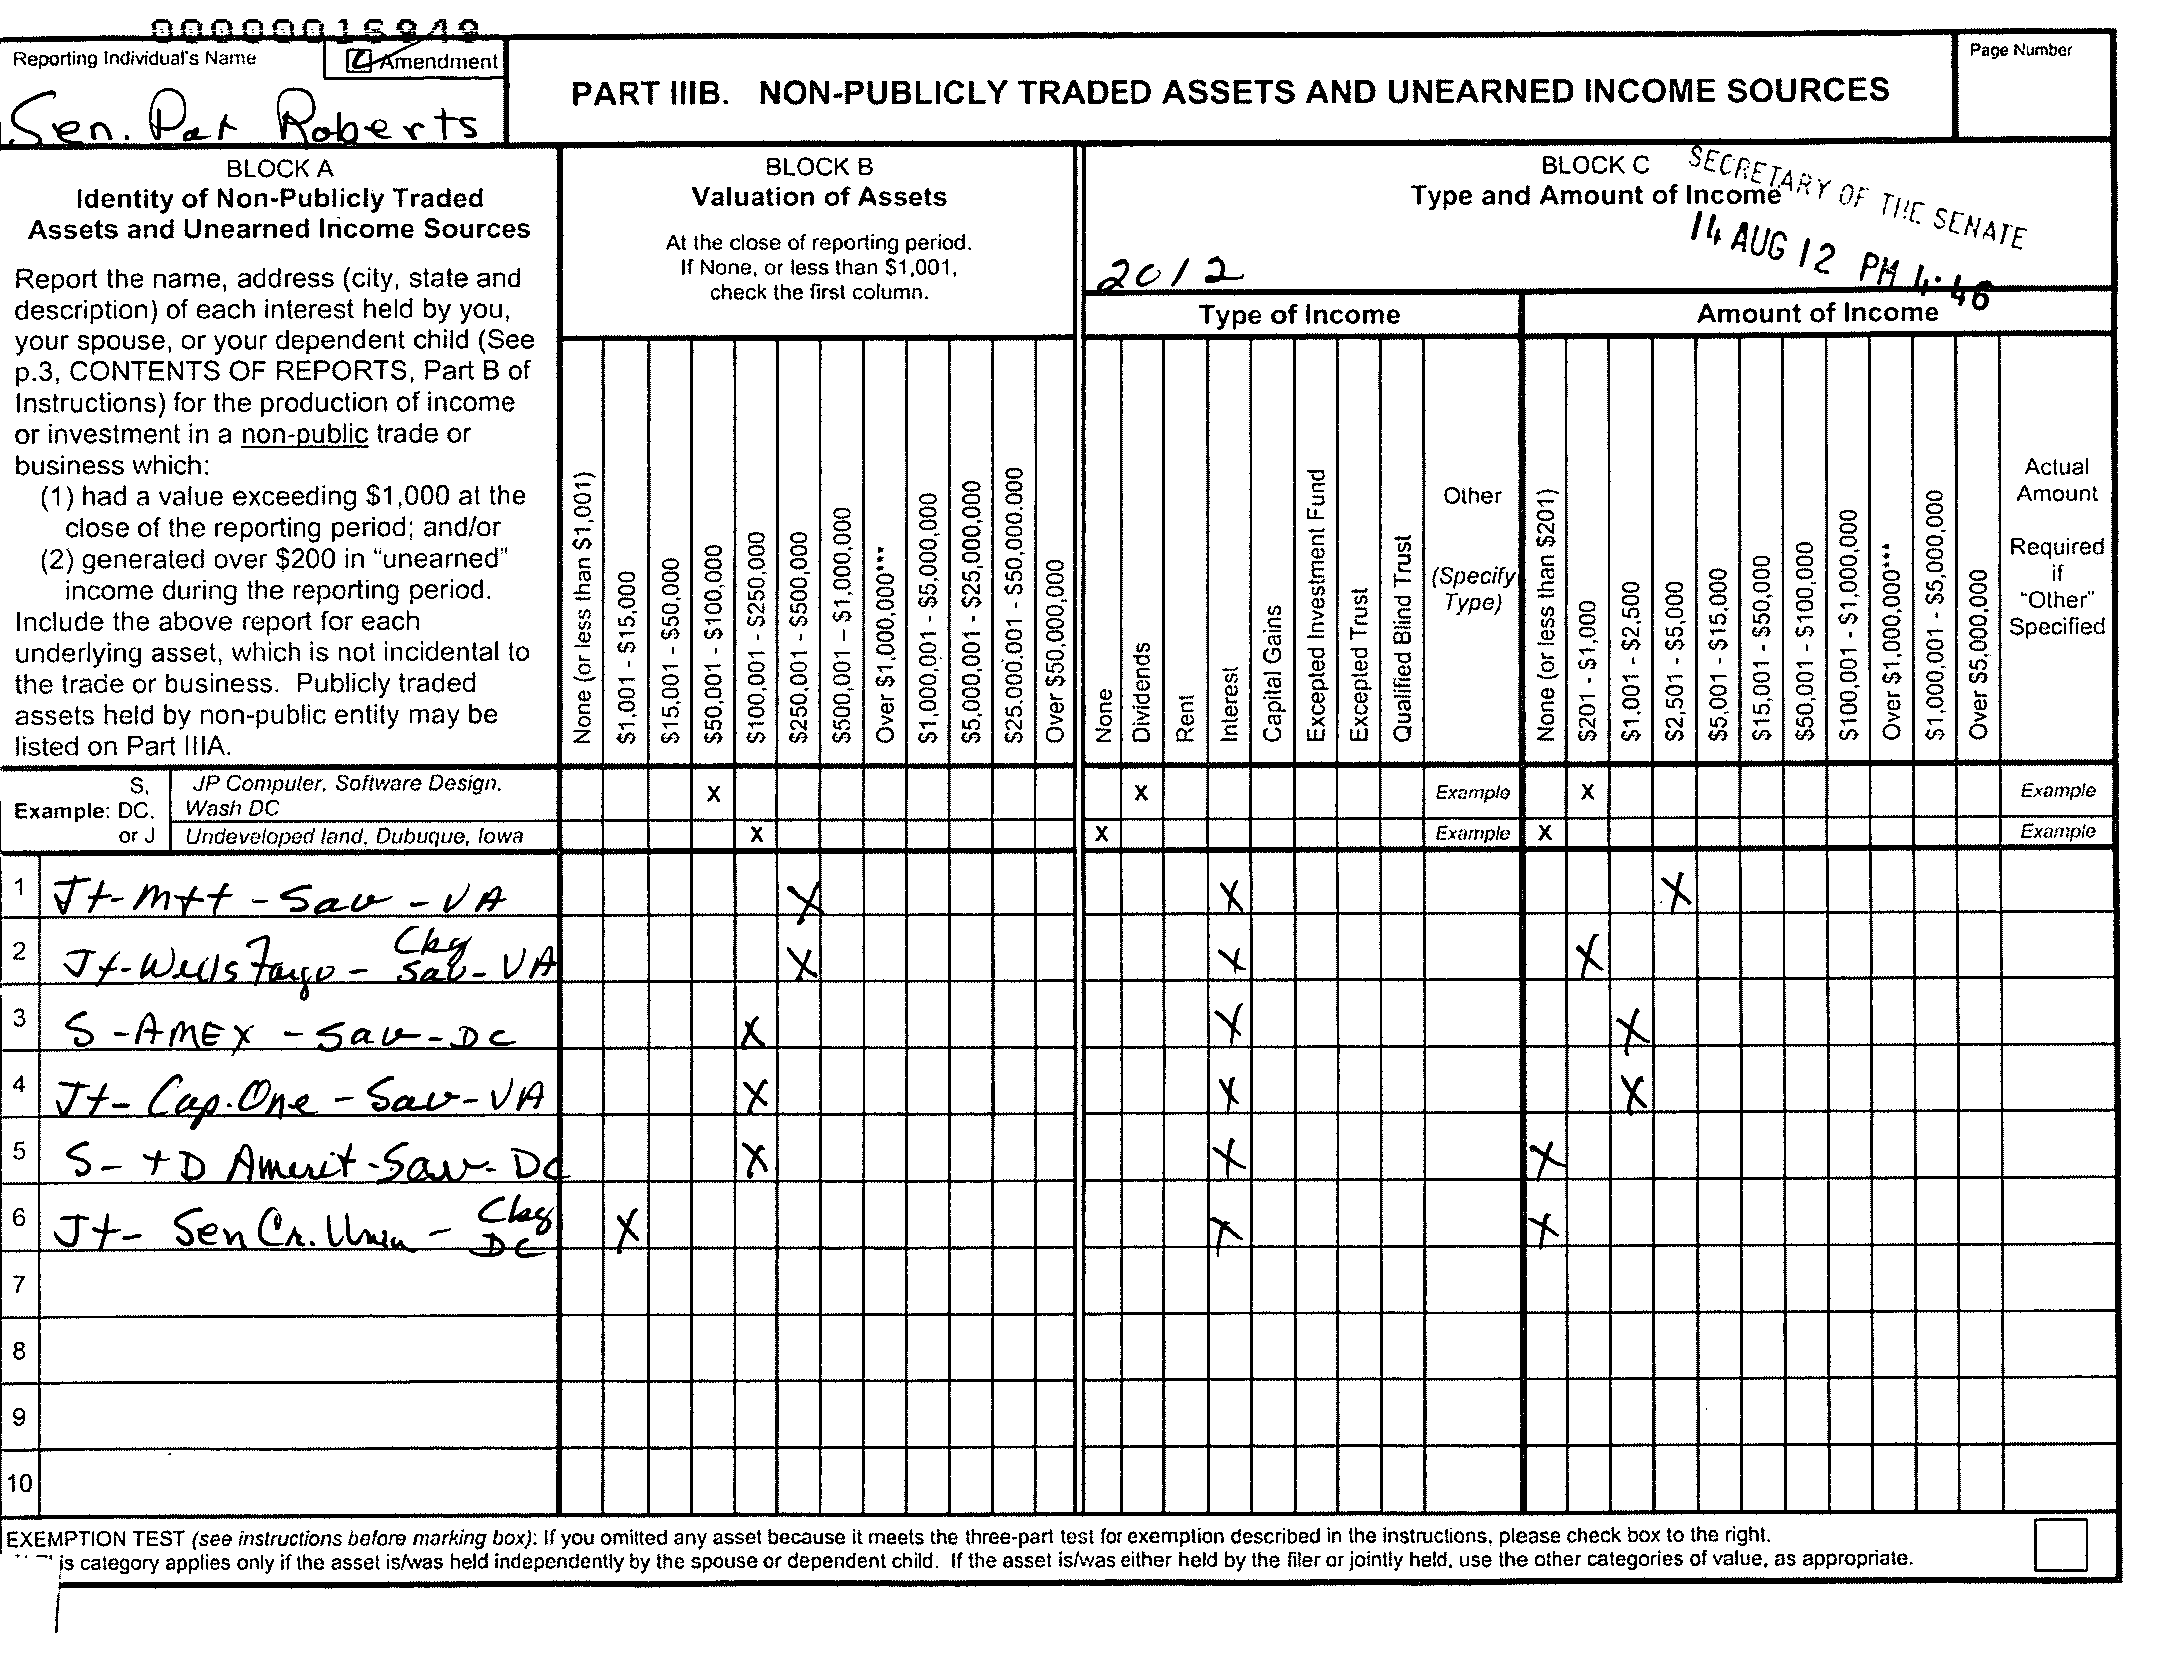 000000015949
Reporting Individual's Name
Amendment
Sen. Pat Roberts
PART IIIB. NON-PUBLICLY TRADED ASSETS AND UNEARNED INCOME SOURCES
Page Number
BLOCK A
Identity of Non-Publicly Traded
Assets and Unearned Income Sources
Report the name, address (city, state and
description) of each interest held by you,
your spouse, or your dependent child (See
p.3, CONTENTS OF REPORTS, Part B of
Instructions) for the production of income
or investment in a non-public trade or
business which:
(1) had a value exceeding $1,000 at the
close of the reporting period; and/or
(2) generated over $200 in "unearned"
income during the reporting period.
Include the above report for each
underlying asset, which is not incidental to
the trade or business. Publicly traded
assets held by non-public entity may be
listed on Part IIIA.
BLOCK B
Valuation of Assets
At the close of reporting period.
If None, or less than $1,001,
check the first column.
None (or less than $1,001)
$1,001 - $15,000
$15,001 - $50,000
$50,001 - $100,000
$100,001 - $250,000
$250,001 - $500,000
$500,001 – $1,000,000
Over $1,000,000***
$1,000,001 - $5,000,000
$5,000,001 - $25,000,000
$25,000,001 - $50,000,000
Over $50,000,000
BLOCK C
Type and Amount of Income
SECRETARY OF THE SENATE
14 AUG 12 PM 4:46
2012
Type of Income
None
Dividends
Rent
Interest
Capital Gains
Excepted Investment Fund
Excepted Trust
Qualified Blind Trust
Other
(Specify
Type)
Amount of Income
None (or less than $201)
$201 - $1,000
$1,001 - $2,500
$2,501 - $5,000
$5,001 - $15,000
$15,001 - $50,000
$50,001 - $100,000
$100,001 - $1,000,000
Over $1,000,000***
$1,000,001 - $5,000,000
Over $5,000,000
Actual
Amount
Required
if
"Other"
Specified
Example: S, DC, or J
JP Computer, Software Design,
Wash DC X X Example X Example
Undeveloped land, Dubuque, Iowa X X Example X Example
1 Jt-Mtt - Sav - VA X X X
2 Jt-Wells Fargo - Ckg Sav - VA X X X
3 S - AMEX - Sav - DC X X X
4 Jt - Cap. One - Sav - VA X X X
5 S - TD Amerit - Sav - DC X X X
6 Jt - Sen Cr. Union - Ckg DC X X X
7
8
9
10
EXEMPTION TEST (see instructions before marking box): If you omitted any asset because it meets the three-part test for exemption described in the instructions, please check box to the right.
is category applies only if the asset is/was held independently by the spouse or dependent child. If the asset is/was either held by the filer or jointly held, use the other categories of value, as appropriate.